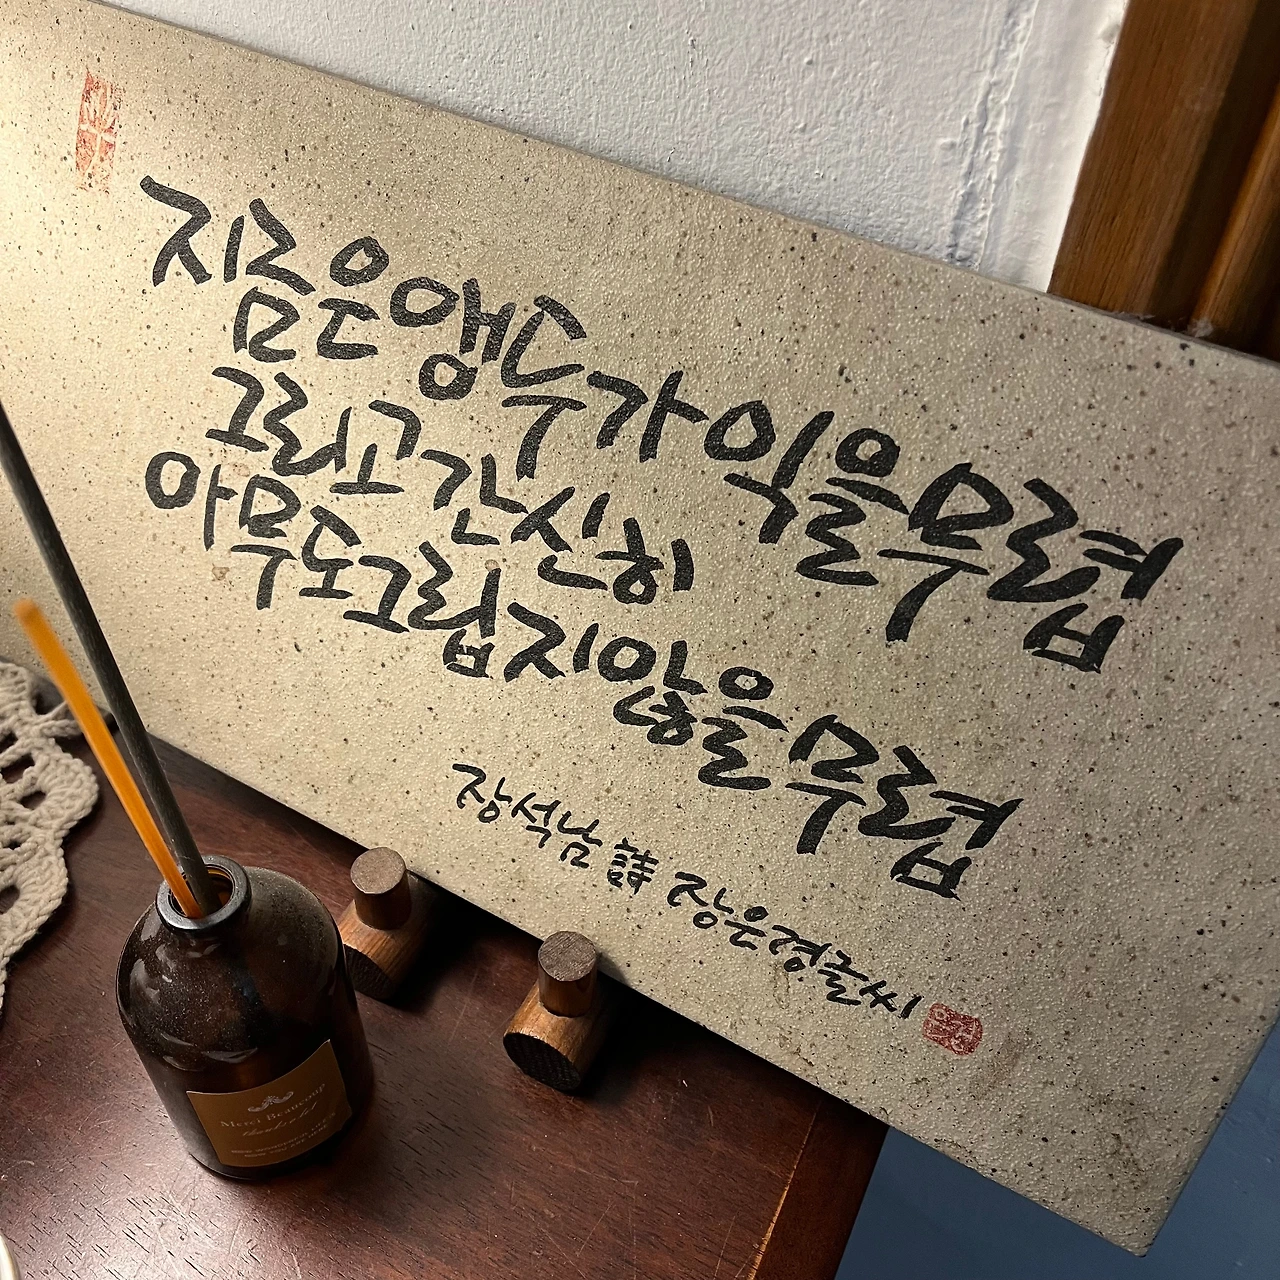 지금은앵두가익을무렵
그리고간신히
아무도그립지않을무렵
장석남 詩 글씨
Merci Beaucoup